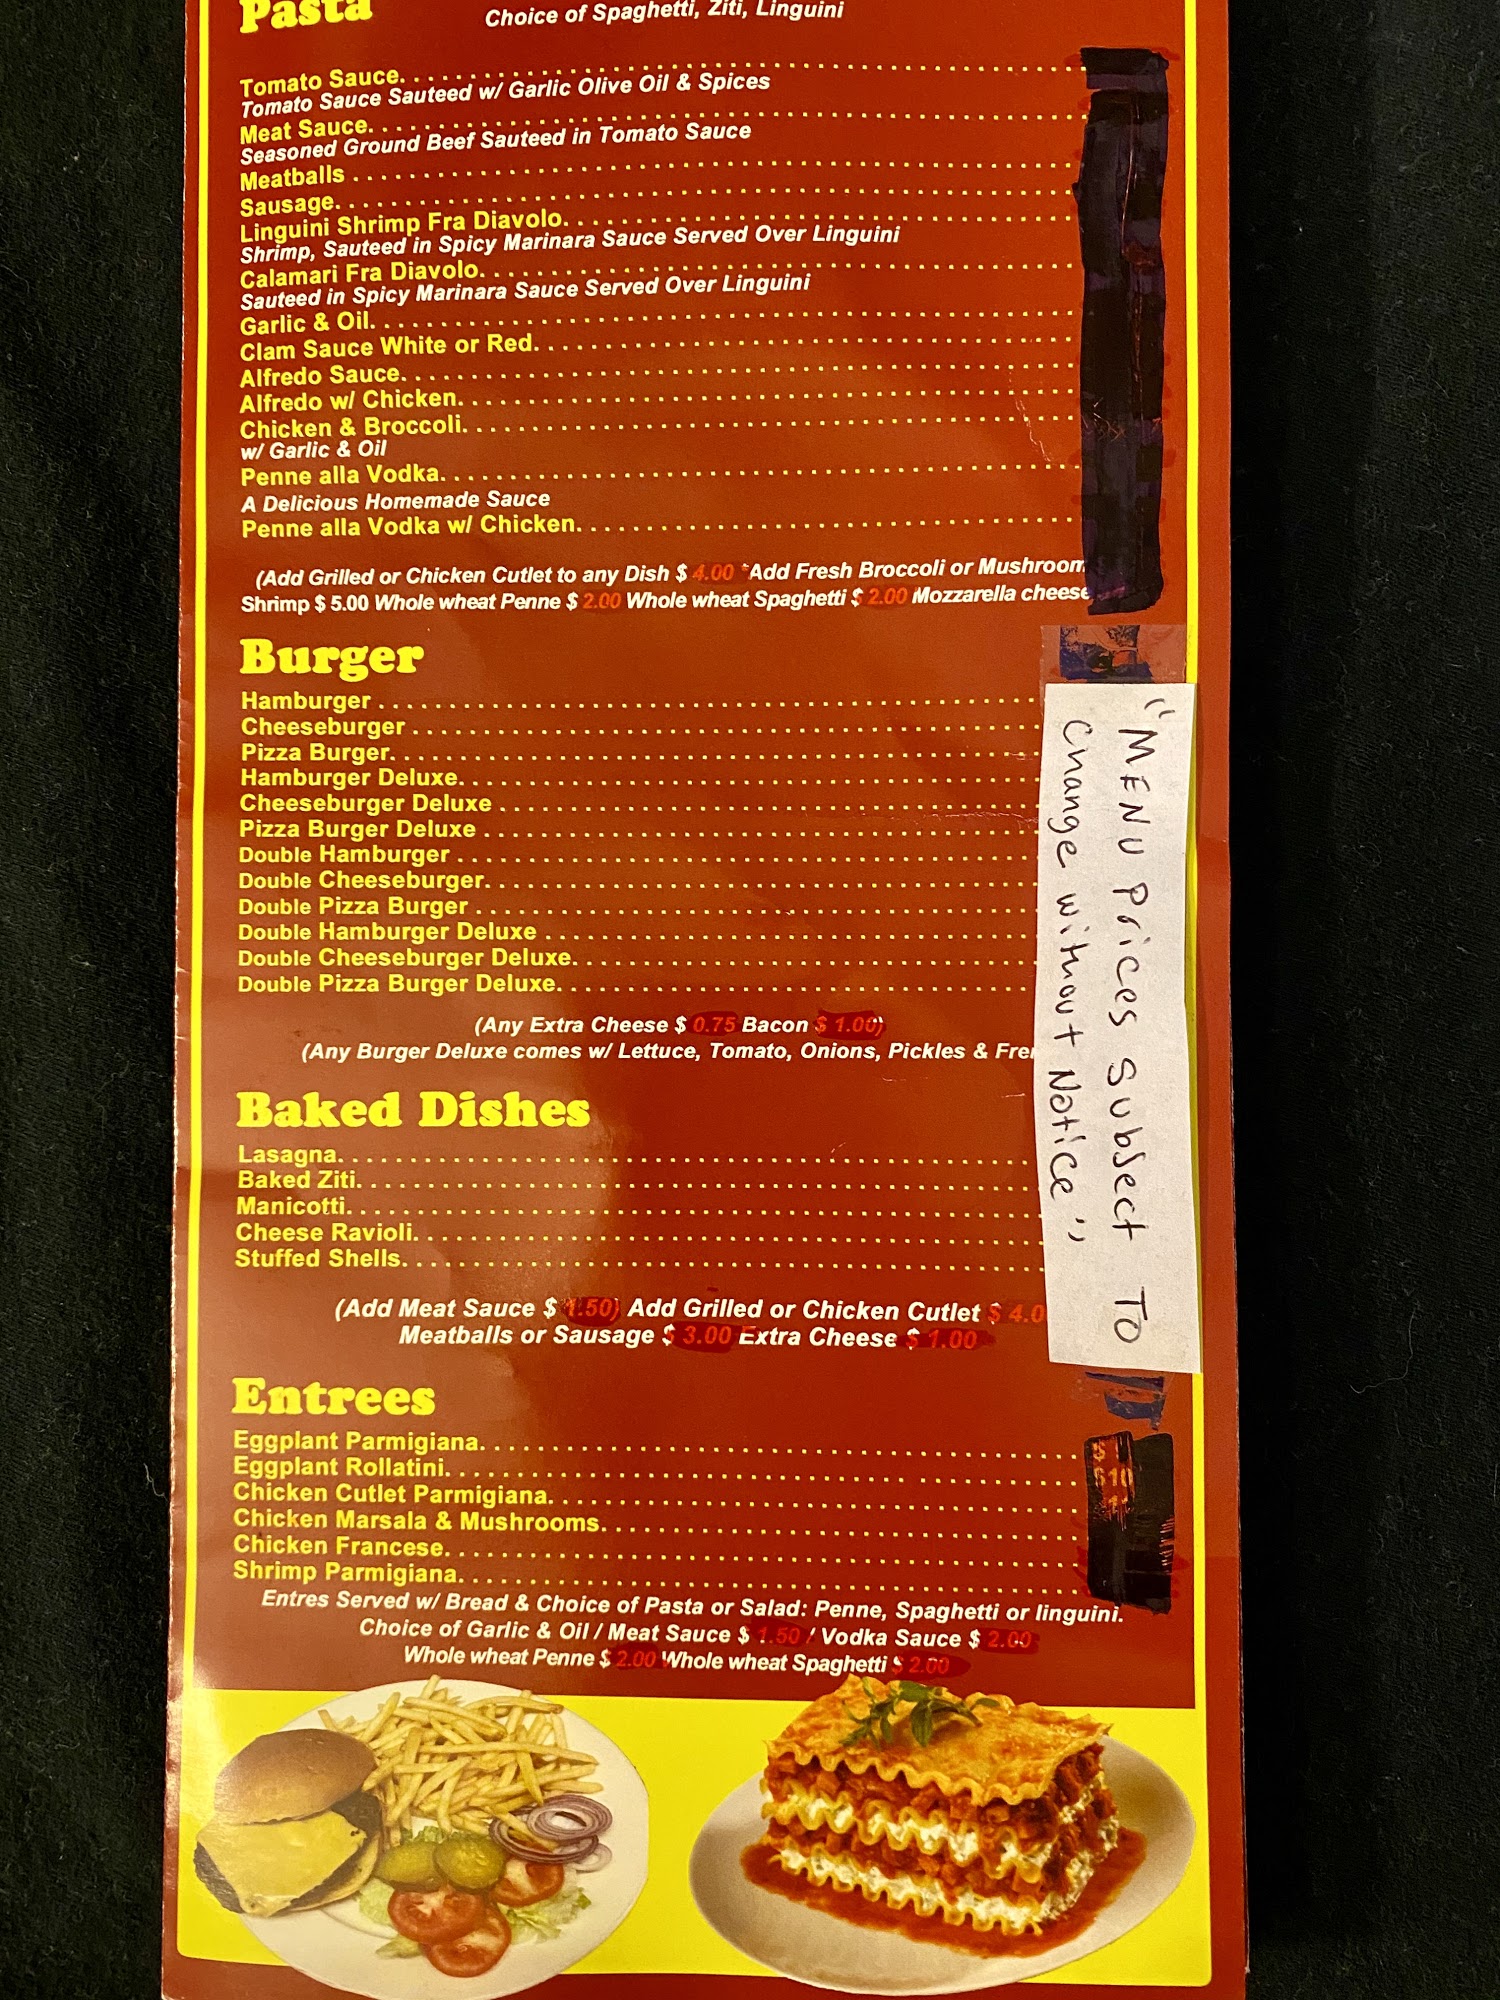 Pasta
Choice of Spaghetti, Ziti, Linguini
Tomato Sauce
Tomato Sauce Sauteed w/ Garlic Olive Oil & Spices
Meat Sauce
Seasoned Ground Beef Sauteed in Tomato Sauce
Meatballs
Sausage
Linguini Shrimp Fra Diavolo
Shrimp, Sauteed in Spicy Marinara Sauce Served Over Linguini
Calamari Fra Diavolo
Sauteed in Spicy Marinara Sauce Served Over Linguini
Garlic & Oil
Clam Sauce White or Red
Alfredo Sauce
Alfredo w/ Chicken
Chicken & Broccoli
w/ Garlic & Oil
Penne alla Vodka
A Delicious Homemade Sauce
Penne alla Vodka w/ Chicken
(Add Grilled or Chicken Cutlet to any Dish $ 4.00 *Add Fresh Broccoli or Mushroom
Shrimp $ 5.00 Whole wheat Penne $ 2.00 Whole wheat Spaghetti $ 2.00 Mozzarella cheese
Burger
Hamburger
Cheeseburger
Pizza Burger
Hamburger Deluxe
Cheeseburger Deluxe
Pizza Burger Deluxe
Double Hamburger
Double Cheeseburger
Double Pizza Burger
Double Hamburger Deluxe
Double Cheeseburger Deluxe
Double Pizza Burger Deluxe
(Any Extra Cheese $ 0.75 Bacon $ 1.00)
(Any Burger Deluxe comes w/ Lettuce, Tomato, Onions, Pickles &
"MENU Prices Subject TO
Change without Notice"
Baked Dishes
Lasagna
Baked Ziti
Manicotti
Cheese Ravioli
Stuffed Shells
(Add Meat Sauce $ 1.50) Add Grilled or Chicken Cutlet $ 4.0
Meatballs or Sausage $ 3.00 Extra Cheese $ 1.00
Entrees
Eggplant Parmigiana
Eggplant Rollatini
Chicken Cutlet Parmigiana
Chicken Marsala & Mushrooms
Chicken Francese
Shrimp Parmigiana
Entres Served w/ Bread & Choice of Pasta or Salad: Penne, Spaghetti or linguini.
Choice of Garlic & Oil / Meat Sauce $ 1.50 / Vodka Sauce $ 2.00
Whole wheat Penne $ 2.00 Whole wheat Spaghetti $ 2.00